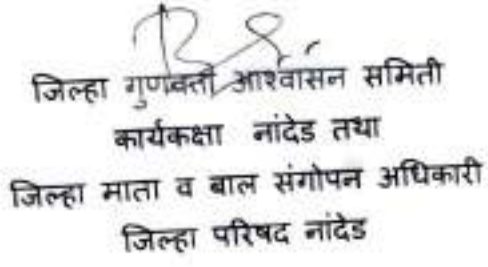 जिल्हा गुणवत्ता आश्वासन समिती
कार्यकक्षा नांदेड तथा
जिल्हा माता व बाल संगोपन अधिकारी
जिल्हा परिषद नांदेड